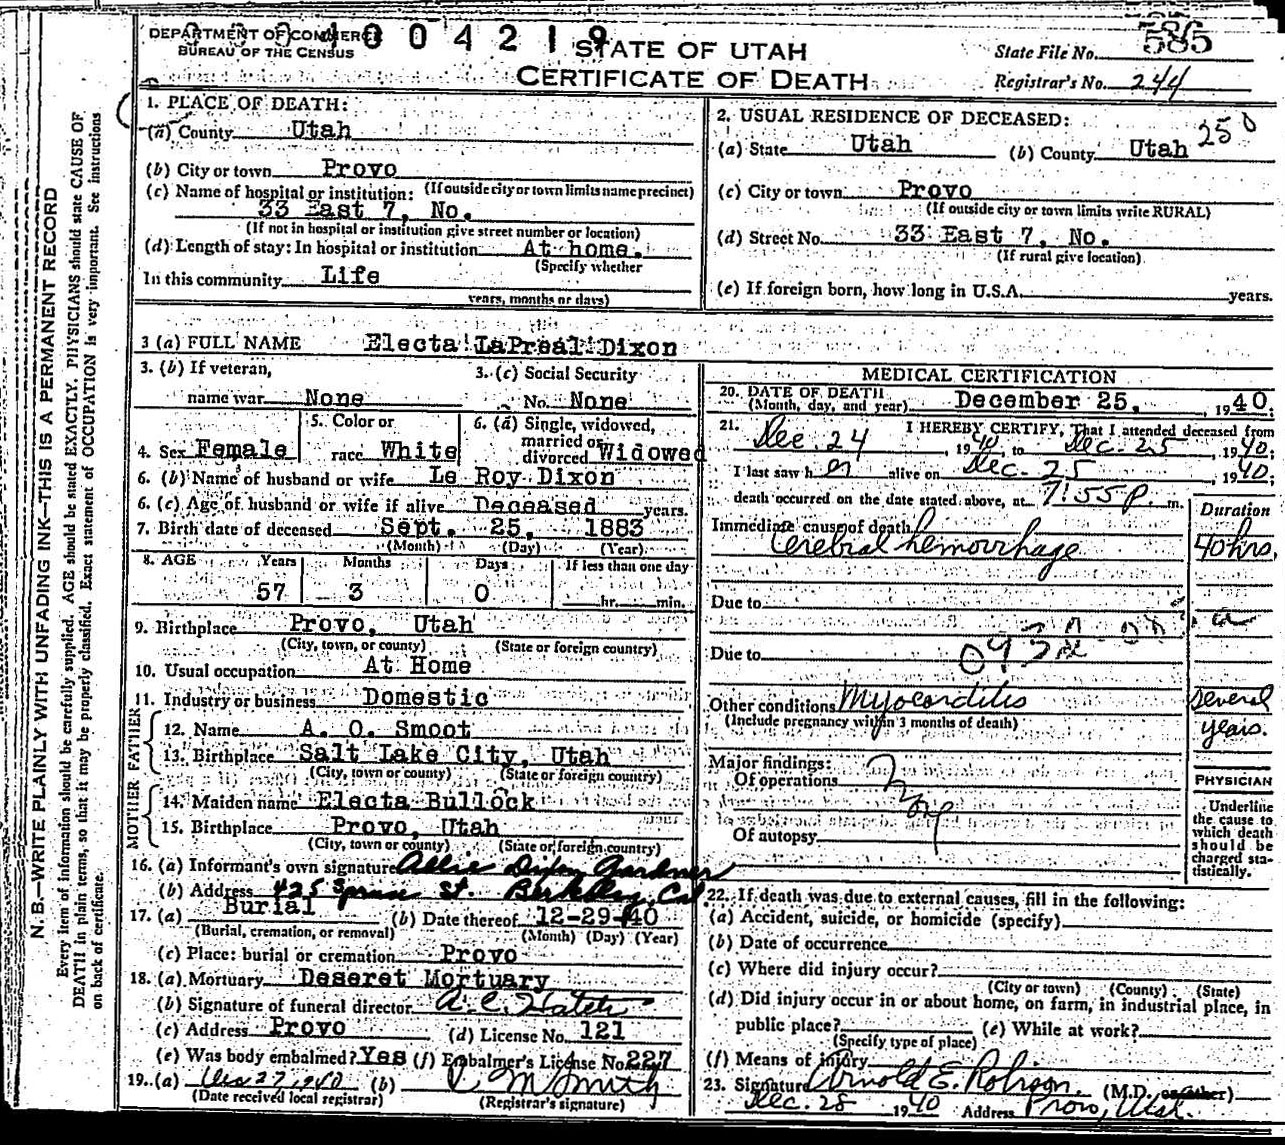 DEPARTMENT OF COMMERCE
BUREAU OF THE CENSUS
004219
STATE OF UTAH
CERTIFICATE OF DEATH
State File No. 585
Registrar's No. 244
1. PLACE OF DEATH:
(a) County Utah
(b) City or town Provo
(If outside city or town limits name precinct)
(c) Name of hospital or institution:
33 East 7, No.
(If not in hospital or institution give street number or location)
(d) Length of stay: In hospital or institution At home.
(Specify whether
In this community Life
years, months or days)
2. USUAL RESIDENCE OF DECEASED:
250
(a) State Utah (b) County Utah
(c) City or town Provo
(If outside city or town limits write RURAL)
(d) Street No. 33 East 7, No.
(If rural give location)
(e) If foreign born, how long in U.S.A. years.
3 (a) FULL NAME Electa LaPreal Dixon
3. (b) If veteran, name war None
3. (c) Social Security No. None
4. Sex Female
5. Color or race White
6. (a) Single, widowed, married or divorced Widowed
6. (b) Name of husband or wife Le Roy Dixon
6. (c) Age of husband or wife if alive Deceased years.
7. Birth date of deceased Sept. 25, 1883
(Month) (Day) (Year)
8. AGE Years Months Days If less than one day
57 3 0 hr. min.
9. Birthplace Provo, Utah
(City, town, or county) (State or foreign country)
10. Usual occupation At Home
11. Industry or business Domestic
FATHER
12. Name A. O. Smoot
13. Birthplace Salt Lake City, Utah
(City, town or county) (State or foreign country)
MOTHER
14. Maiden name Electa Bullock
15. Birthplace Provo, Utah
(City, town or county) (State or foreign country)
16. (a) Informant's own signature Allie Dixon Gardner
(b) Address 425 Spruce St. Berkeley, Cal
17. (a) Burial (b) Date thereof 12-29-40
(Burial, cremation, or removal) (Month) (Day) (Year)
(c) Place: burial or cremation Provo
18. (a) Mortuary Deseret Mortuary
(b) Signature of funeral director A. C. Hatch
(c) Address Provo (d) License No. 121
(e) Was body embalmed? Yes (f) Embalmer's License No. 227
19. (a) Dec 27, 1940 (b) Smith
(Date received local registrar) (Registrar's signature)
MEDICAL CERTIFICATION
20. DATE OF DEATH December 25, 1940;
(Month, day, and year)
21. I HEREBY CERTIFY, That I attended deceased from
Dec. 24, 1940 to Dec. 25, 1940;
I last saw her alive on Dec. 25, 1940;
death occurred on the date stated above, at 7:55 P. m.
Duration
Immediate cause of death
Cerebral hemorrhage 40 hrs.
Due to
Due to
Other conditions Myocarditis several years.
(Include pregnancy within 3 months of death)
Major findings:
Of operations None
Of autopsy
PHYSICIAN
Underline
the cause to
which death
should be
charged sta-
tistically.
22. If death was due to external causes, fill in the following:
(a) Accident, suicide, or homicide (specify)
(b) Date of occurrence
(c) Where did injury occur?
(City or town) (County) (State)
(d) Did injury occur in or about home, on farm, in industrial place, in
public place? (e) While at work?
(Specify type of place)
(f) Means of injury
23. Signature Arnold E. Robison (M.D. or other)
Dec. 28 1940 Address Provo, Utah.
N. B.—WRITE PLAINLY WITH UNFADING INK—THIS IS A PERMANENT RECORD
Every item of information should be carefully supplied. AGE should be stated EXACTLY. PHYSICIANS should state CAUSE OF
DEATH in plain terms, so that it may be properly classified. Exact statement of OCCUPATION is very important. See instructions
on back of certificate.